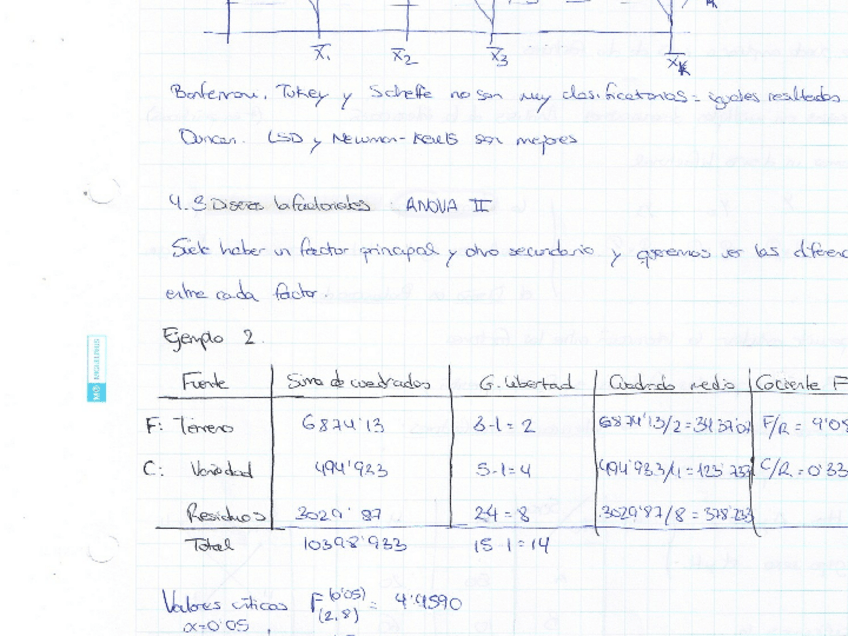 X̄₁ X̄₂ X̄₃ X̄k
Bonferroni, Tukey y Scheffe no son muy clasificatorios = iguales resultados
Duncan, LSD y Newman-Keuls son mejores
4.3 Diseños bifactoriales: ANOVA II
Suele haber un factor principal y otro secundario y queremos ver las diferenc
entre cada factor.
Ejemplo 2.
Fuente Suma de cuadrados G. libertad Cuadrado medio Cociente F
F: Terreno 6874'13 3-1=2 6874'13/2=3437'07 F/R = 9'08
C: Variedad 494'933 5-1=4 494'933/4=123'733 C/R = 0'33
Residuos 3029'87 2·4=8 3029'87/8=378'733
Total 10398'933 15-1=14
Valores críticos F(0'05)(2,8) = 4'4590
α=0'05
MIQUELRIUS